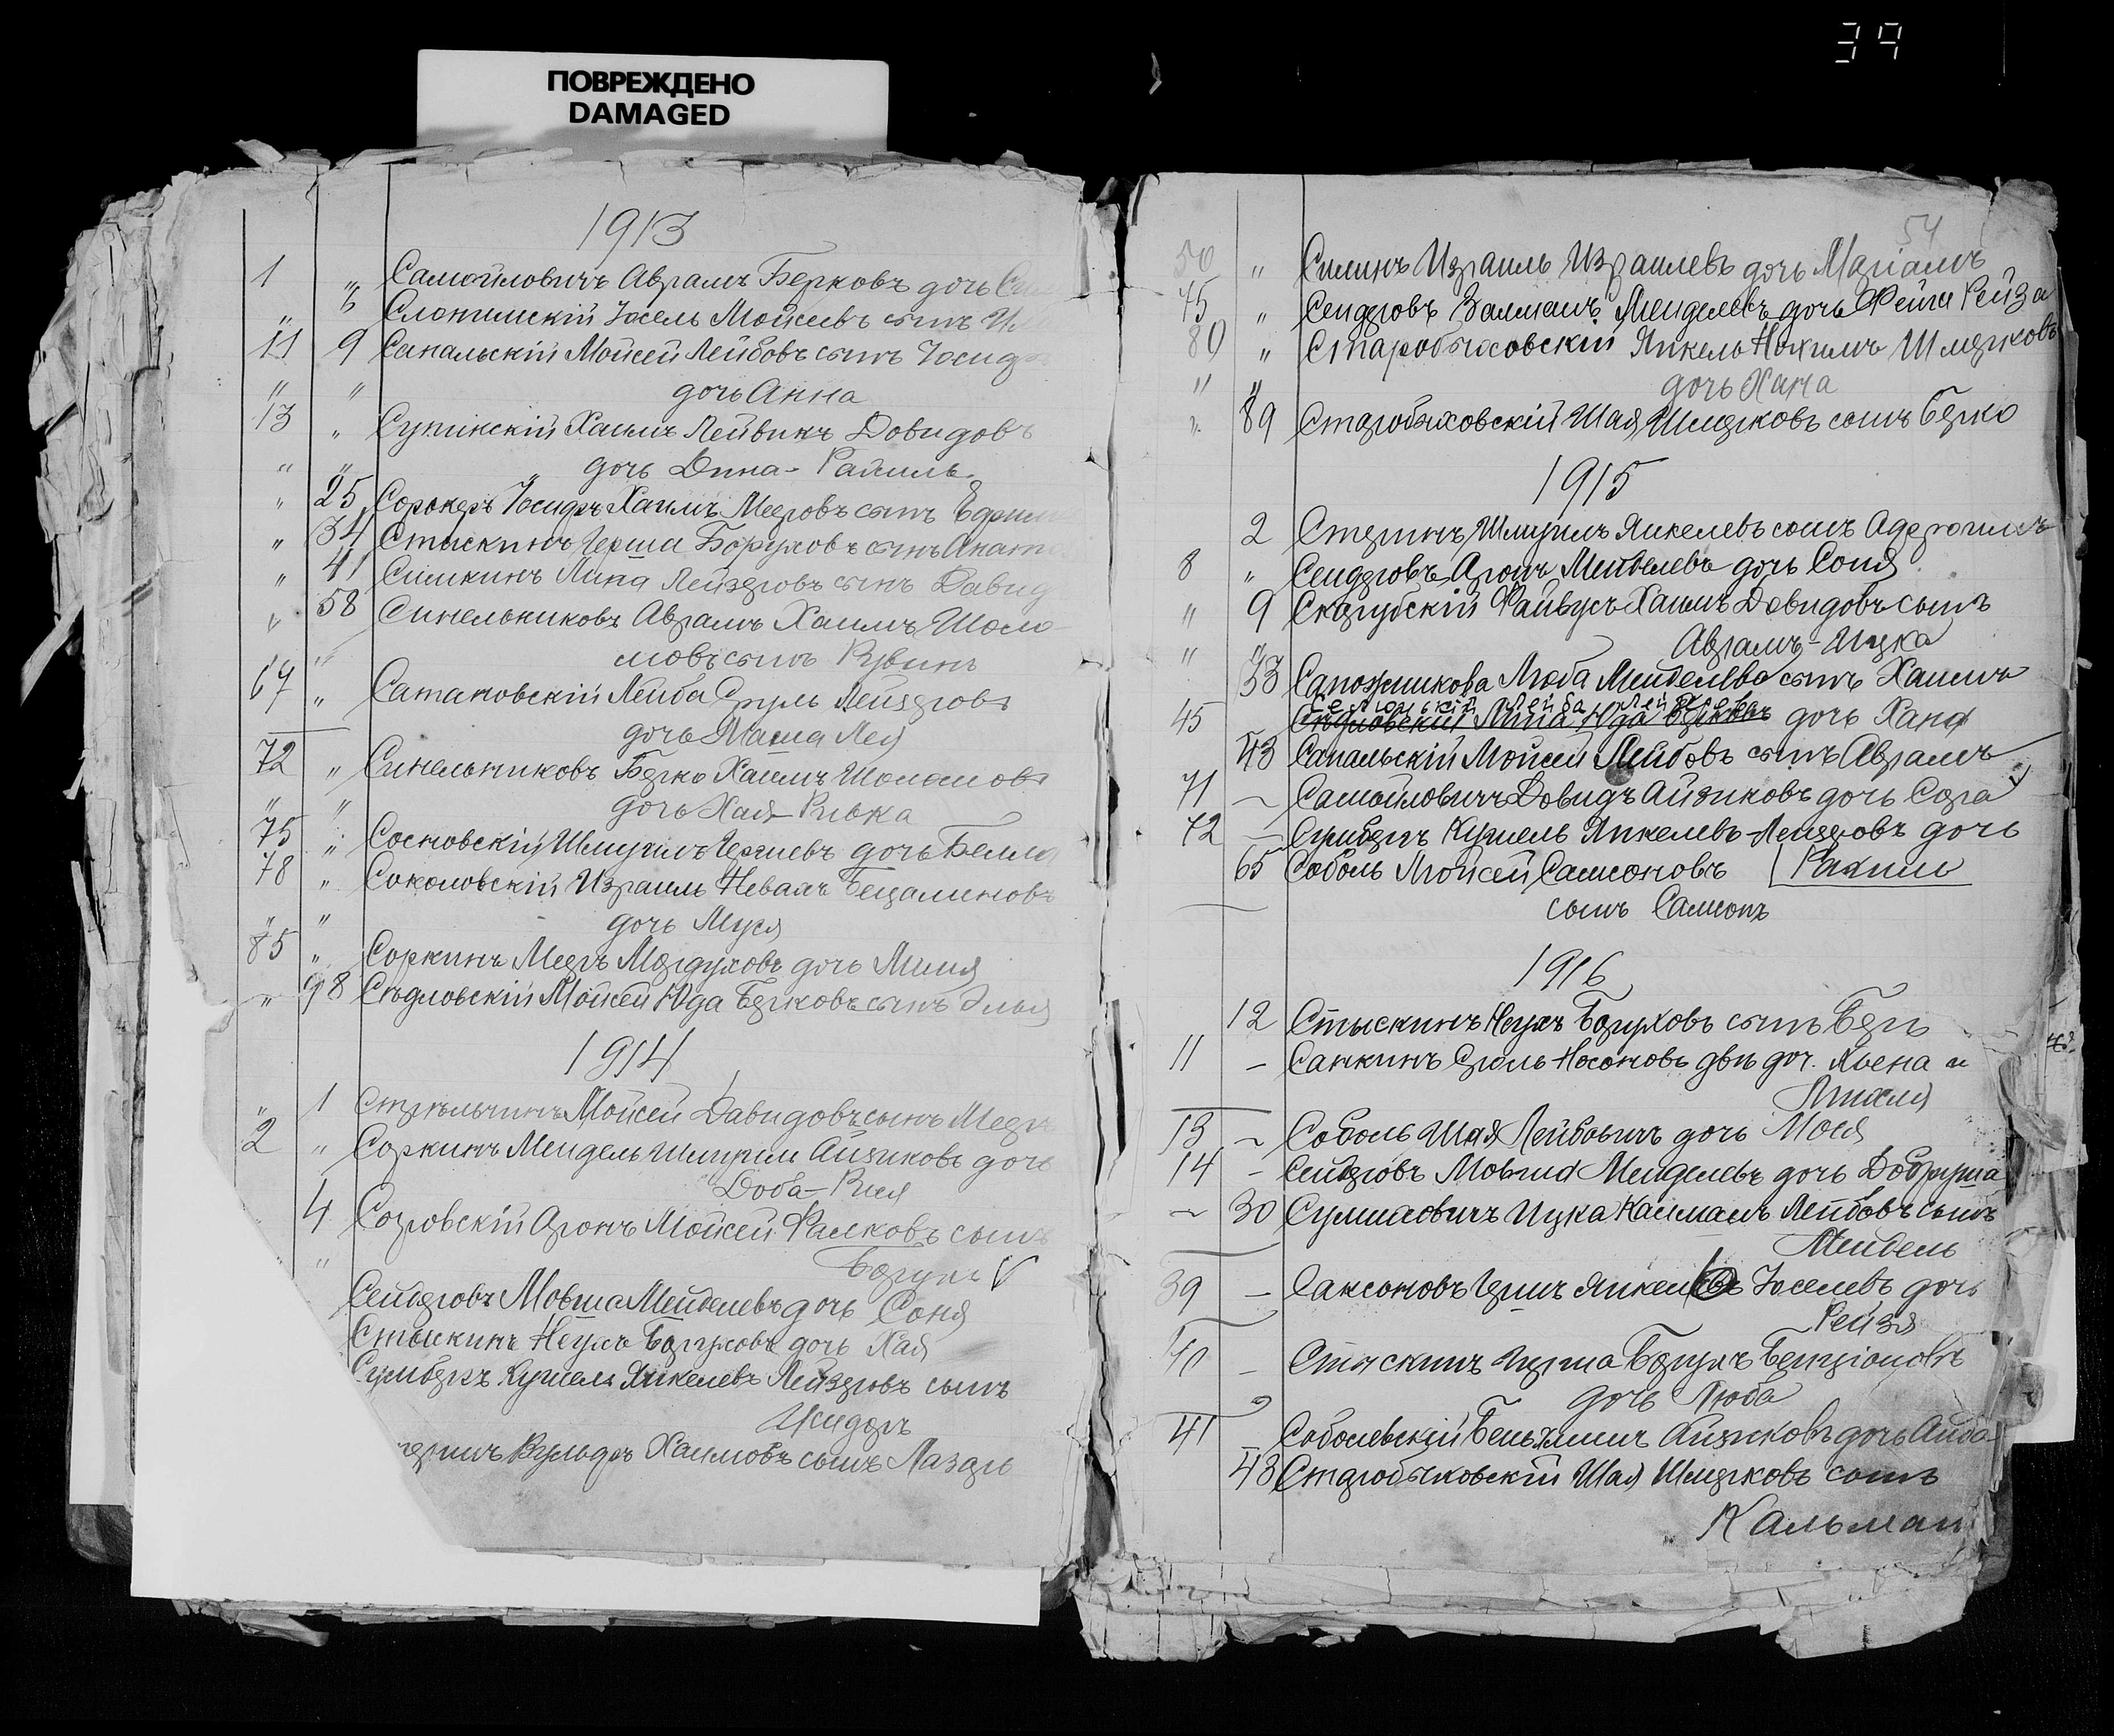 39
ПОВРЕЖДЕНО
DAMAGED
1913
1 " Самойловичъ Абрамъ Берковъ дочь
" 6 Слонимскій Іосель Мойсеевъ сынъ
11 9 Сапальскій Мойсей Лейбовъ сынъ
" " дочь Анна
13 " Сутинскій Хаимъ Лейвикъ Довидовъ
" " дочь Дина-Рахиль
" 25 Сорокеръ Іосифъ Хаимъ Мееровъ сынъ
" 34 Стыскинъ Герша Боруховъ сынъ
" 41 Симкинъ Липа Лейзеровъ сынъ Давид
" 58 Синельниковъ Абрамъ Хаимъ Шоло-
" мовъ сынъ Рувинъ
67 " Сатановскій Лейба Сруль Лейзеровъ
дочь Маша Лея
72 " Синельниковъ Берко Хаимъ Шоломовъ
" " дочь Хая-Ривка
75 " Сосновскій Шмуилъ Гершевъ дочь Белла
78 " Соколовскій Израиль Невахъ Бецалиновъ
" " дочь Муся
85 " Соркинъ Мееръ Мордуховъ дочь
" 98 Сѣдловскій Мойсей Юда Берковъ сынъ Элья
1914
" 1 Стрѣльчинъ Мойсей Давидовъ сынъ Меер
2 " Соркинъ Мендель Шмуили Айзиковъ дочь
Доба-
4 Созровскій Аронъ Мойсей Фалковъ сынъ
" Борухъ V
Сендеровъ Мовша Менделевъ дочь Соня
Стыскинъ Неухъ Боруховъ дочь Хая
Кушель Янкелевъ Лейзеровъ сынъ
Исидоръ
Вульфъ Хаимовъ сынъ Лазарь
54
50 " Силинъ Израиль Израилевъ дочь Маріамъ
75 " Сендеровъ Залманъ Менделевъ дочь Фейга Рейза
80 " Старобыховскій Янкель Нохимъ Шмерковъ
" " дочь Хана
" 89 Старобыховскій Шая Шмерковъ сынъ Берко
1915
2 Стеринъ Шмуилъ Янкелевъ сынъ
8 " Сендеровъ Аронъ Менделевъ дочь Соня
" 9 Скарубскій Файвусъ Хаимъ Довидовъ сынъ
" " Абрамъ-Ицка
33 Сапожникова Люба Менделева сынъ Хаимъ
Лейба Лейзеровъ
45 Сѣдловскій Юда Берковъ дочь Хана
43 Сапальскій Мойсей Лейбовъ сынъ Абрамъ
71 – Самойловичъ Довидъ Айзиковъ дочь Сора
72 – Кушель Янкелевъ-Лейзеровъ дочь
65 Соболь Мойсей Самсоновъ Рахиль
сынъ Самсонъ
1916
12 Стыскинъ Неухъ Боруховъ сынъ Беръ
11 – Санкинъ Сроль Носоновъ двѣ доч. и
13 – Соболь Шая Лейбовичъ дочь
14 – Сендеровъ Мовша Менделевъ дочь Добруша
– 30 Ицка Кальманъ Лейбовъ сынъ
Мендель
39 – Саксоновъ Гершъ Янкелевъ Іоселевъ дочь
Рейзя
40 – Стыскинъ Герша Борухъ Бенціоновъ
дочь Люба
41 – Соболевскій Беньяминъ Айзиковъ дочь
43 Старобыховскій Шая Шмерковъ сынъ
Кальман